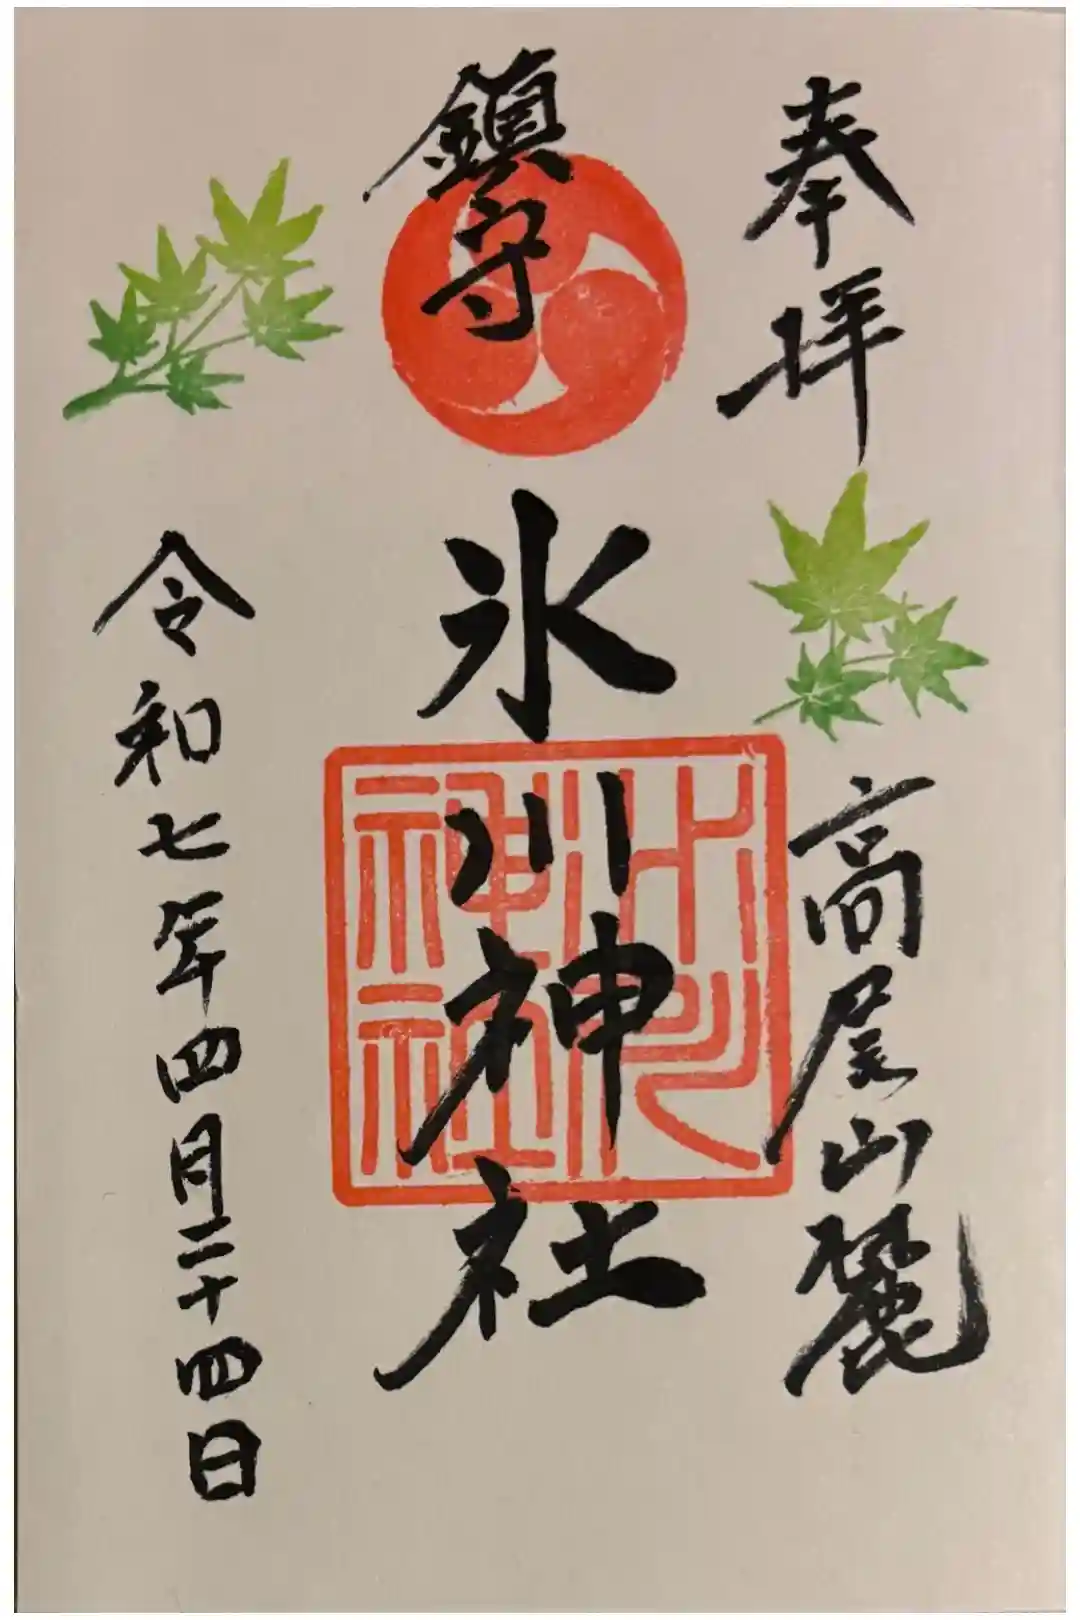 奉拝
高尾山麓
鎮守
氷川神社
氷川
神社
令和七年四月二十四日